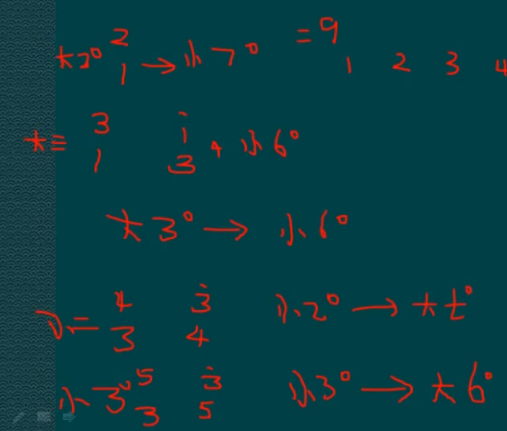 大2° 2/1 → 小7° =9
1 2 3 4
大三 3/1 i/3 小6°
大3° → 小6°
小二 4/3 3̇/4 小2° → 大七°
小3° 5/3 3̇/5 小3° → 大6°